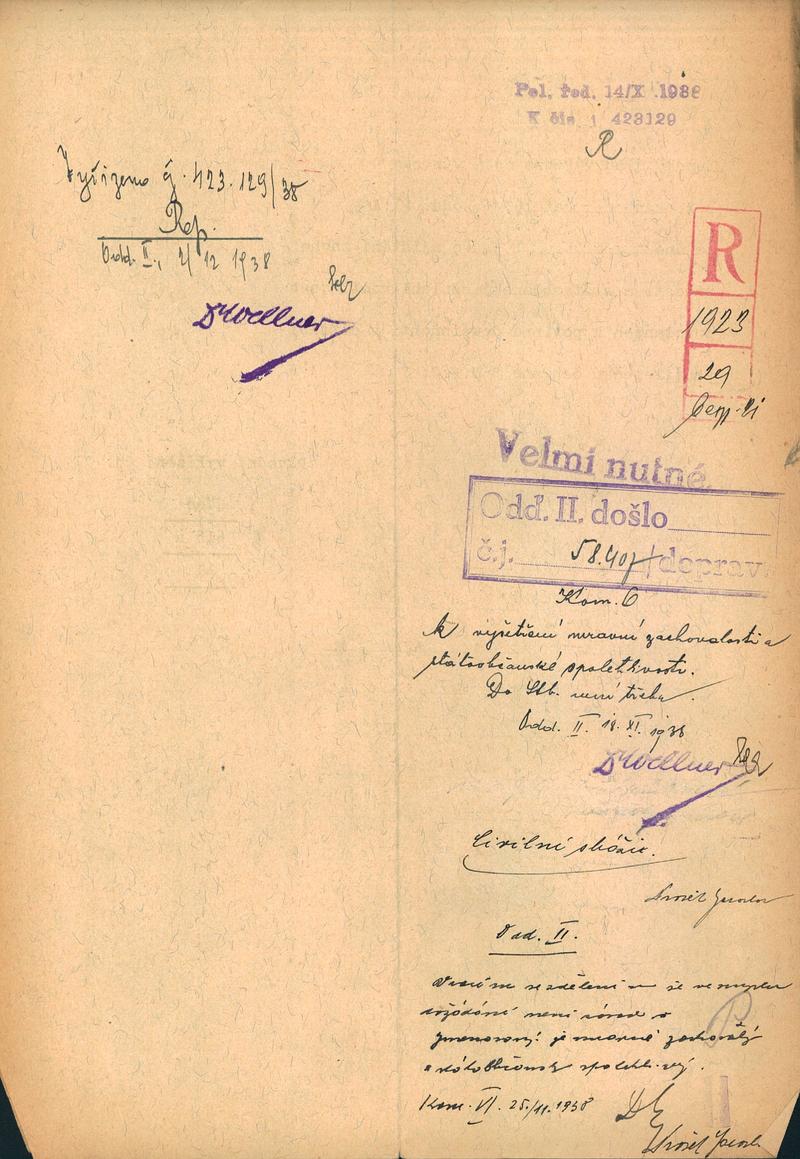 Vyřízeno č. 423.129/38
Rep.
Odd. II., 2/12 1938
Dr Wellner
Pol. řed. 14/X .1938
K čís 423129
R
R
1923
29
Velmi nutné
Odd. II. došlo
č.j. 58.407/ doprav.
Kom. 6
k vyšetření mravní zachovalosti a
státoobčanské spolehlivosti.
Do Stb. není třeba.
Odd. II. 18. XI. 1938
Dr Wellner
Civilní stráži.
Odd. II.
Vracím se sdělením že ve smyslu
dožádání není závad
jmenovaný je mravně zachovalý
a státoobčansky spolehlivý.
Kom. VI. 25./11. 1938